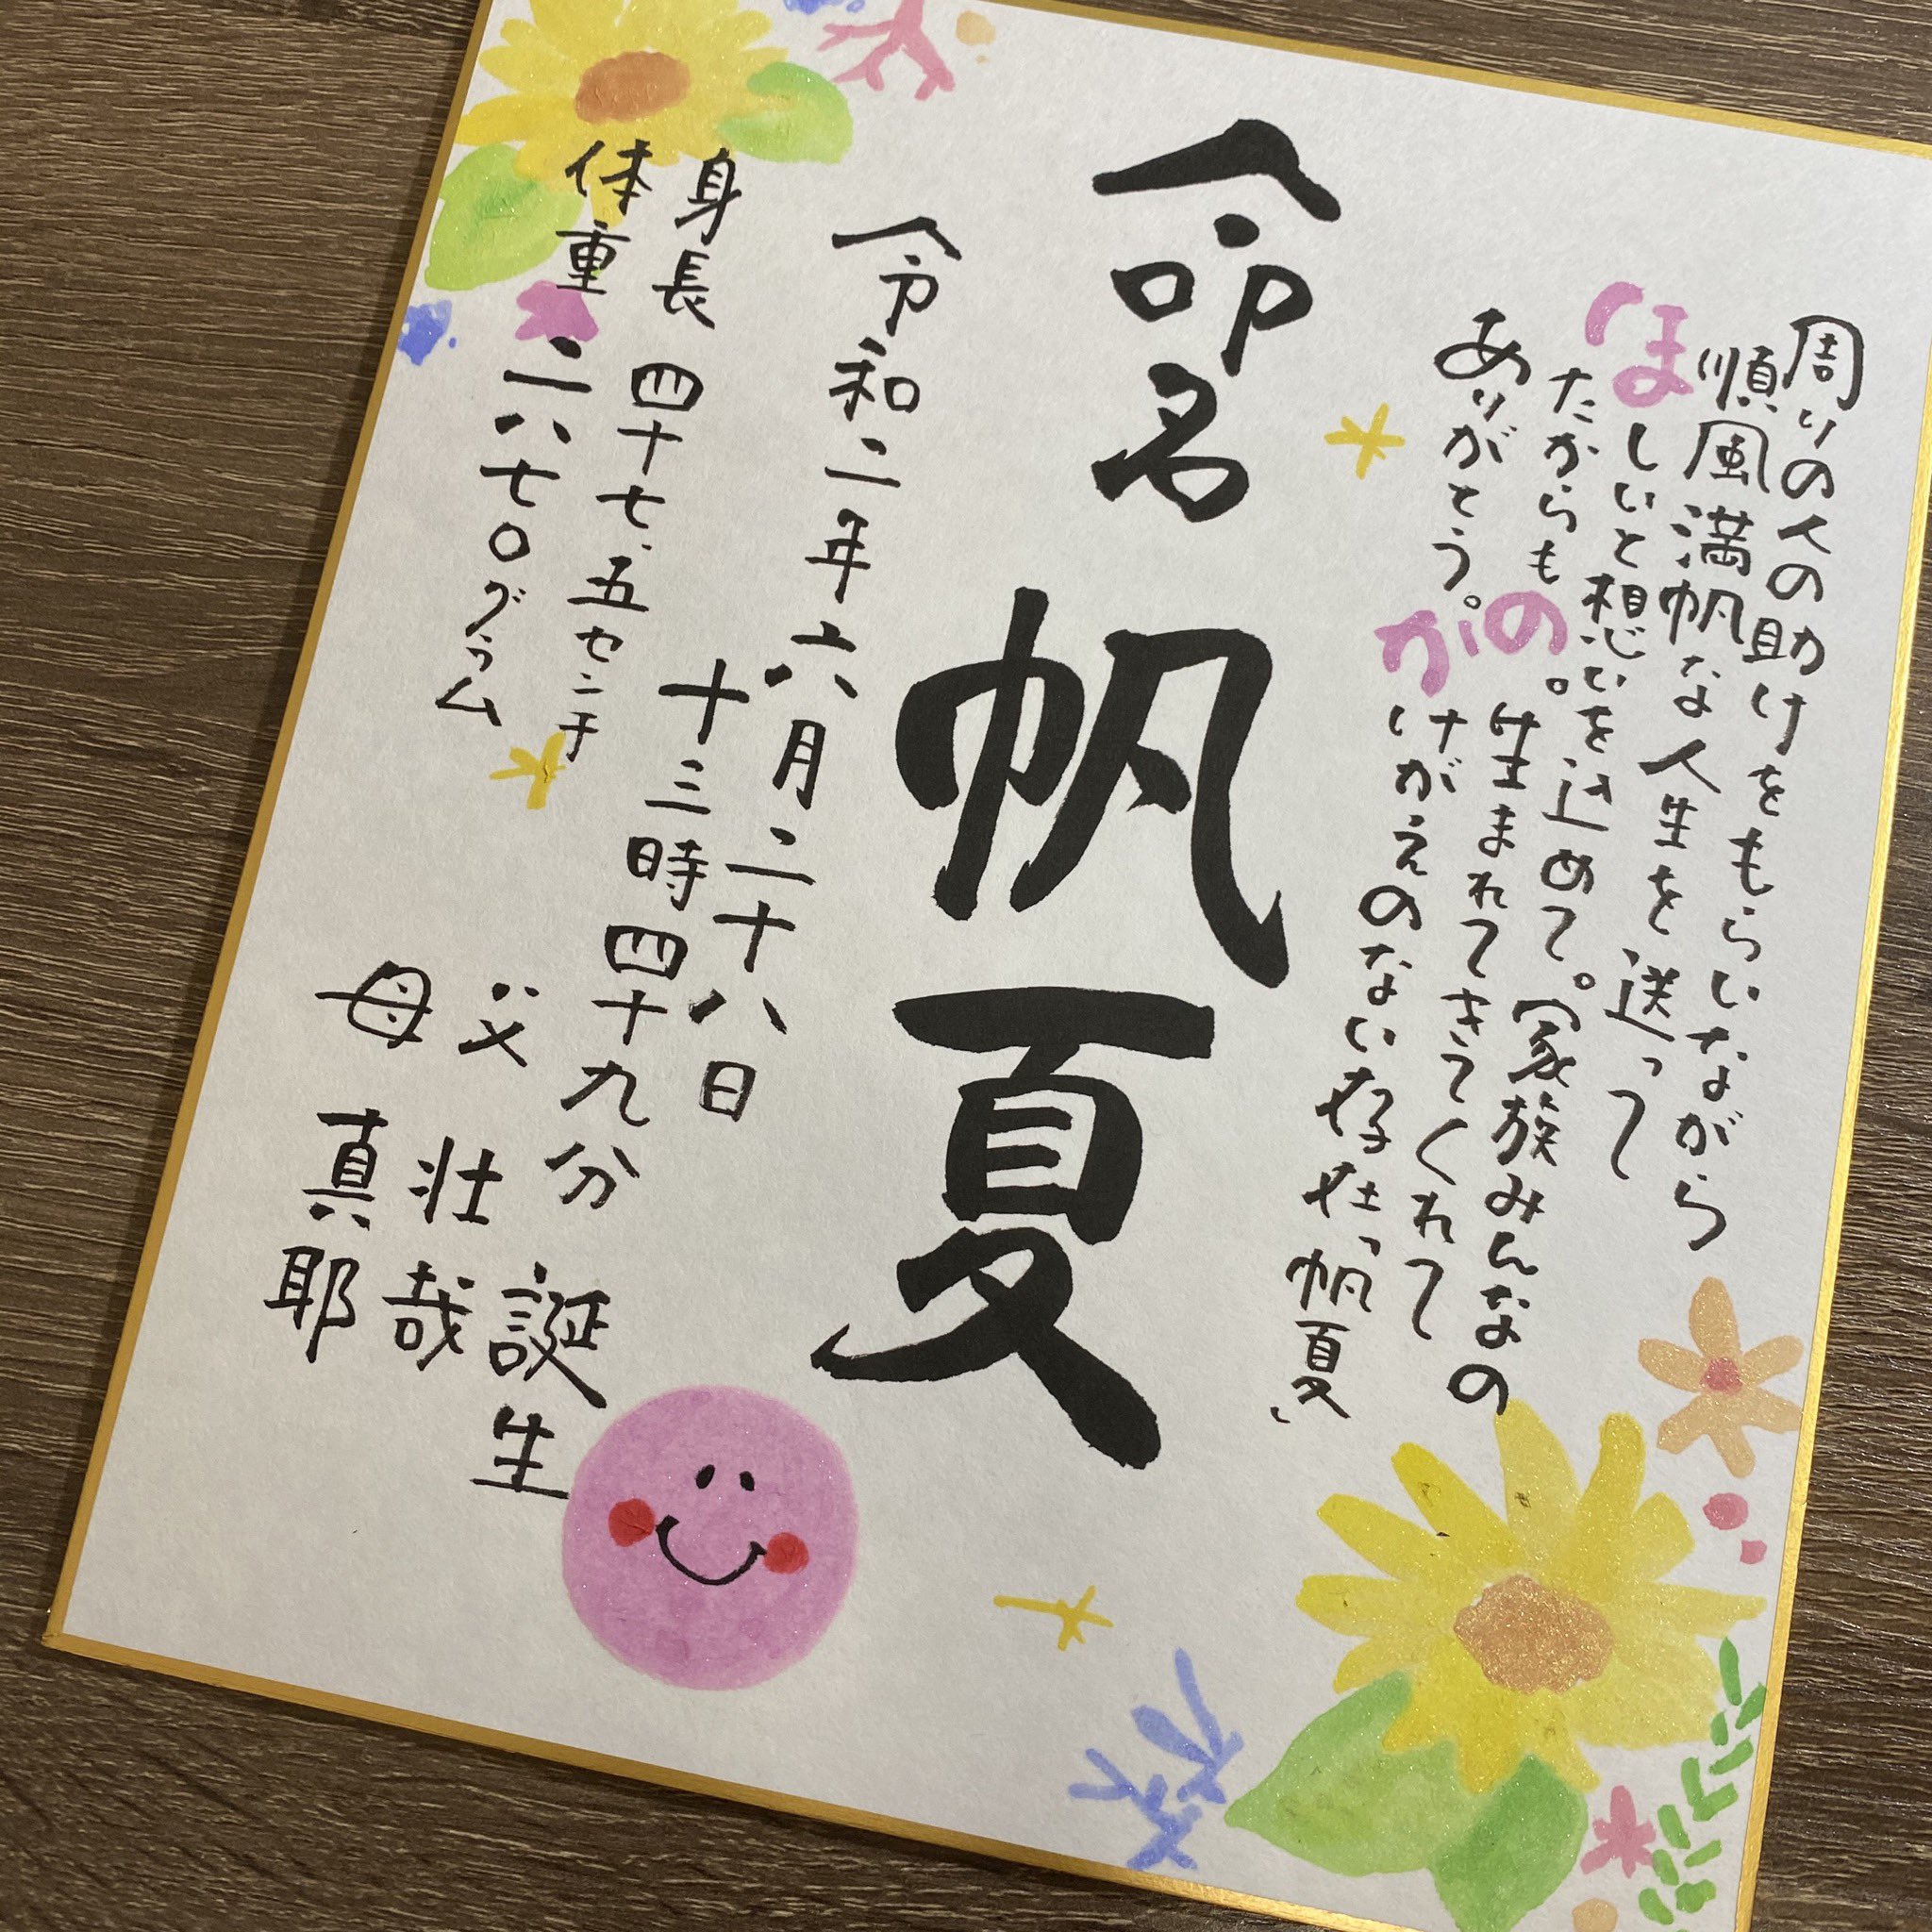 周りの人の助けをもらいながら
順風満帆な人生を送って
ほしいと想いを込めて。家族みんなの
たからもの。生まれてきてくれて
ありがとう。かけがえのない存在っ帆夏」
命名 帆夏
令和二年六月二十八日
十三時四十九分 誕生
身長 四十七.五センチ
体重 二八七〇グラム
父 壮哉
母 真耶